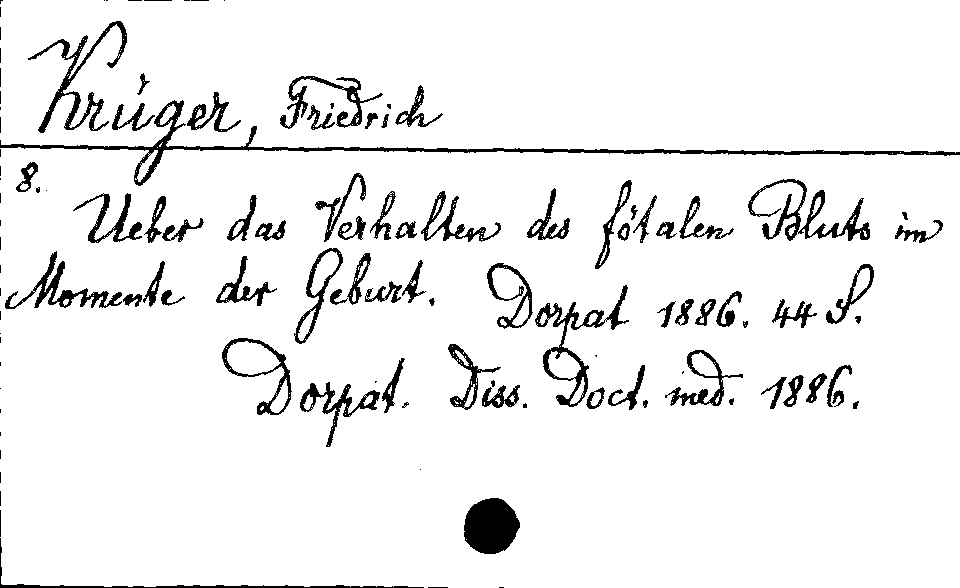 Krüger, Friedrich
8.
Ueber das Verhalten des fötalen Bluts im
Momente der Geburt. Dorpat 1886. 44 S.
Dorpat. Diss. Doct. med. 1886.